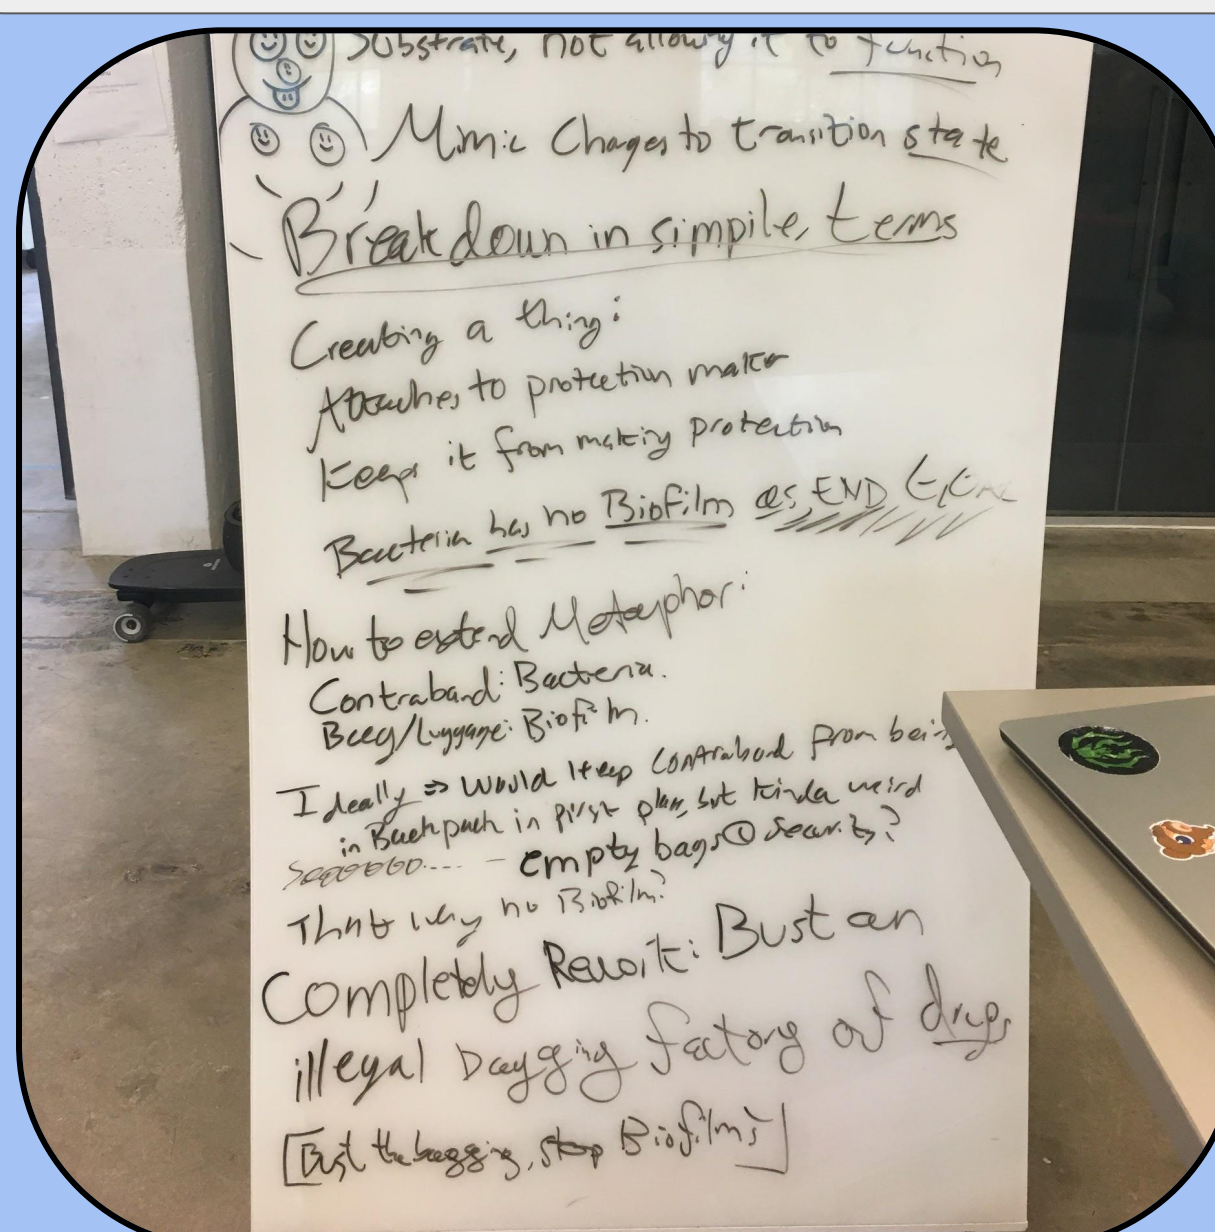 Substrate, not allowy it to function
Mimic Chages to transition state
Breakdown in simpile, terms
Creating a thing:
Attaches to protection maker
Keeps it from making protection
Bacteria has no Biofilm as END
How to extend Metaphor:
Contraband: Bacteria.
Bag/Luggage: Biofilm.
Ideally => Would keep contraband from being
in Backpack in first place, but kinda weird
Soooooo.... - empty bags @ Security?
That why no Biofilm?
Completely Rework: Bust an
illegal Bagging factory of drugs
[Bust the bagging, stop Biofilms]